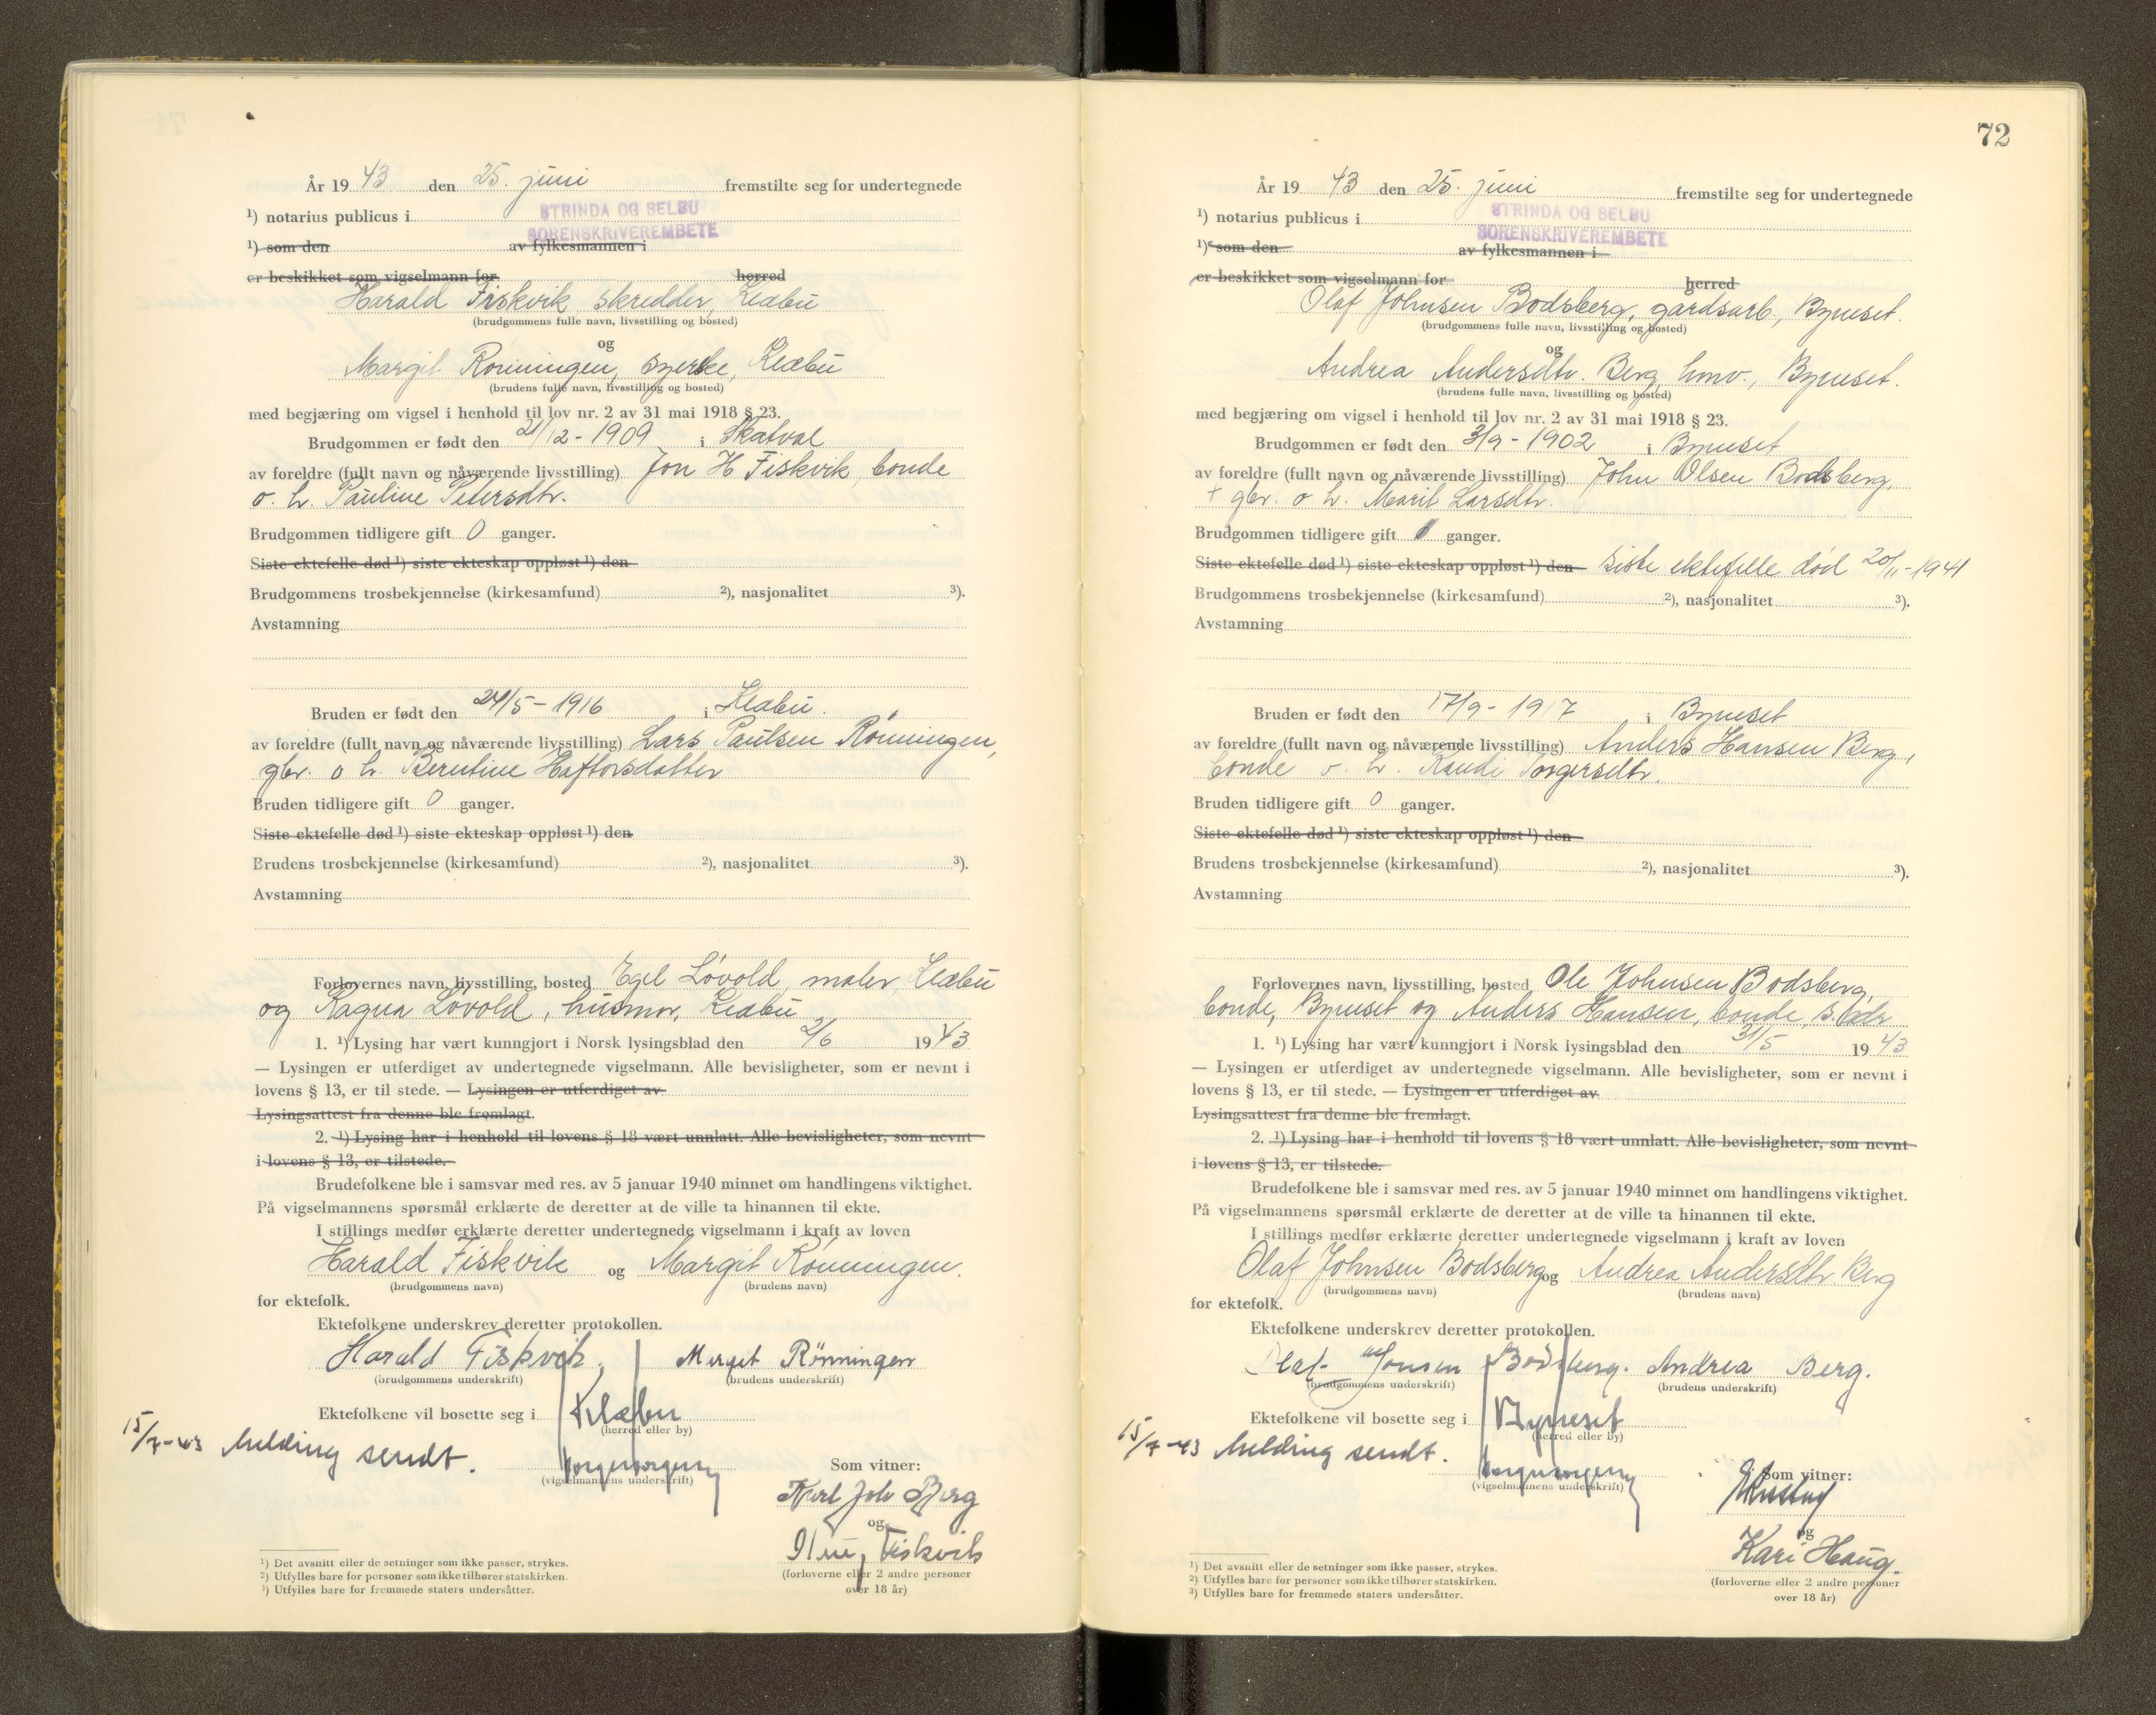 År 19 43 den 25. juni fremstilte seg for undertegnede
¹) notarius publicus i STRINDA OG SELBU
SORENSKRIVEREMBETE
¹) som den av fylkesmannen i
er beskikket som vigselmann for herred
Harald Fiskvik, skredder, Klæbu
(brudgommens fulle navn, livsstilling og bosted)
og
Margit Rönningen, syerske, Klæbu
(brudens fulle navn, livsstilling og bosted)
med begjæring om vigsel i henhold til lov nr. 2 av 31 mai 1918 § 23.
Brudgommen er født den 21/12 - 1909 i Skatval
av foreldre (fullt navn og nåværende livsstilling) Jon H Fiskvik, bonde
o. h. Pauline Petersdtr.
Brudgommen tidligere gift 0 ganger.
Siste ektefelle død ¹) siste ekteskap oppløst ¹) den
Brudgommens trosbekjennelse (kirkesamfund) ²), nasjonalitet ³).
Avstamning
Bruden er født den 24/5 - 1916 i Klæbu.
av foreldre (fullt navn og nåværende livsstilling) Lars Paulsen Rönningen,
gbr. o h. Berntine Haftorsdatter
Bruden tidligere gift 0 ganger.
Siste ektefelle død ¹) siste ekteskap oppløst ¹) den
Brudens trosbekjennelse (kirkesamfund) ²), nasjonalitet ³).
Avstamning
Forlovernes navn, livsstilling, bosted Egil Lövold, maler, Klæbu
og Ragna Lövold, husmor, Klæbu
1. ¹) Lysing har vært kunngjort i Norsk lysingsblad den 2/6 1943
— Lysingen er utferdiget av undertegnede vigselmann. Alle bevisligheter, som er nevnt i
lovens § 13, er til stede. — Lysingen er utferdiget av
Lysingsattest fra denne ble fremlagt.
2. ¹) Lysing har i henhold til lovens § 18 vært unnlatt. Alle bevisligheter, som nevnt
i lovens § 13, er tilstede.
Brudefolkene ble i samsvar med res. av 5 januar 1940 minnet om handlingens viktighet.
På vigselmannens spørsmål erklærte de deretter at de ville ta hinannen til ekte.
I stillings medfør erklærte deretter undertegnede vigselmann i kraft av loven
Harald Fiskvik og Margit Rönningen.
(brudgommens navn) (brudens navn)
for ektefolk.
Ektefolkene underskrev deretter protokollen.
Harald Fiskvik, Margit Rönningen
(brudgommens underskrift) (brudens underskrift)
Ektefolkene vil bosette seg i Klæbu
(herred eller by)
15/7-43 Melding sendt.
(vigselmannens underskrift)
Som vitner:
Karl Joh Berg
og
Fiskvik
(forloverne eller 2 andre personer
over 18 år)
¹) Det avsnitt eller de setninger som ikke passer, strykes.
²) Utfylles bare for personer som ikke tilhører statskirken.
³) Utfylles bare for fremmede staters undersåtter.
72
År 19 43 den 25. juni fremstilte seg for undertegnede
¹) notarius publicus i STRINDA OG SELBU
SORENSKRIVEREMBETE
¹) som den av fylkesmannen i
er beskikket som vigselmann for herred
Olaf Johnsen Bodsberg, gårdsarb., Byneset.
(brudgommens fulle navn, livsstilling og bosted)
og
Andrea Andersdtr. Berg, hmv., Byneset.
(brudens fulle navn, livsstilling og bosted)
med begjæring om vigsel i henhold til lov nr. 2 av 31 mai 1918 § 23.
Brudgommen er født den 3/9 - 1902 i Byneset
av foreldre (fullt navn og nåværende livsstilling) John Olsen Bodsberg,
+ gbr. o h. Marit Larsdtr.
Brudgommen tidligere gift 1 ganger.
Siste ektefelle død ¹) siste ekteskap oppløst ¹) den siste ektefelle död 20/11-1941
Brudgommens trosbekjennelse (kirkesamfund) ²), nasjonalitet ³).
Avstamning
Bruden er født den 17/9 - 1917 i Byneset
av foreldre (fullt navn og nåværende livsstilling) Anders Hansen Berg,
bonde o. h. Randi Torgersdtr.
Bruden tidligere gift 0 ganger.
Siste ektefelle død ¹) siste ekteskap oppløst ¹) den
Brudens trosbekjennelse (kirkesamfund) ²), nasjonalitet ³).
Avstamning
Forlovernes navn, livsstilling, bosted Ole Johnsen Bodsberg,
bonde, Byneset og Anders Hansen, bonde,
1. ¹) Lysing har vært kunngjort i Norsk lysingsblad den 31/5 1943
— Lysingen er utferdiget av undertegnede vigselmann. Alle bevisligheter, som er nevnt i
lovens § 13, er til stede. — Lysingen er utferdiget av
Lysingsattest fra denne ble fremlagt.
2. ¹) Lysing har i henhold til lovens § 18 vært unnlatt. Alle bevisligheter, som nevnt
i lovens § 13, er tilstede.
Brudefolkene ble i samsvar med res. av 5 januar 1940 minnet om handlingens viktighet.
På vigselmannens spørsmål erklærte de deretter at de ville ta hinannen til ekte.
I stillings medfør erklærte deretter undertegnede vigselmann i kraft av loven
Olaf Johnsen Bodsberg og Andrea Andersdtr. Berg
(brudgommens navn) (brudens navn)
for ektefolk.
Ektefolkene underskrev deretter protokollen.
Olaf Jonsen Bodsberg. Andrea Berg.
(brudgommens underskrift) (brudens underskrift)
Ektefolkene vil bosette seg i Byneset
(herred eller by)
15/7-43 Melding sendt.
(vigselmannens underskrift)
Som vitner:
og
Kari Haug.
(forloverne eller 2 andre personer
over 18 år)
¹) Det avsnitt eller de setninger som ikke passer, strykes.
²) Utfylles bare for personer som ikke tilhører statskirken.
³) Utfylles bare for fremmede staters undersåtter.